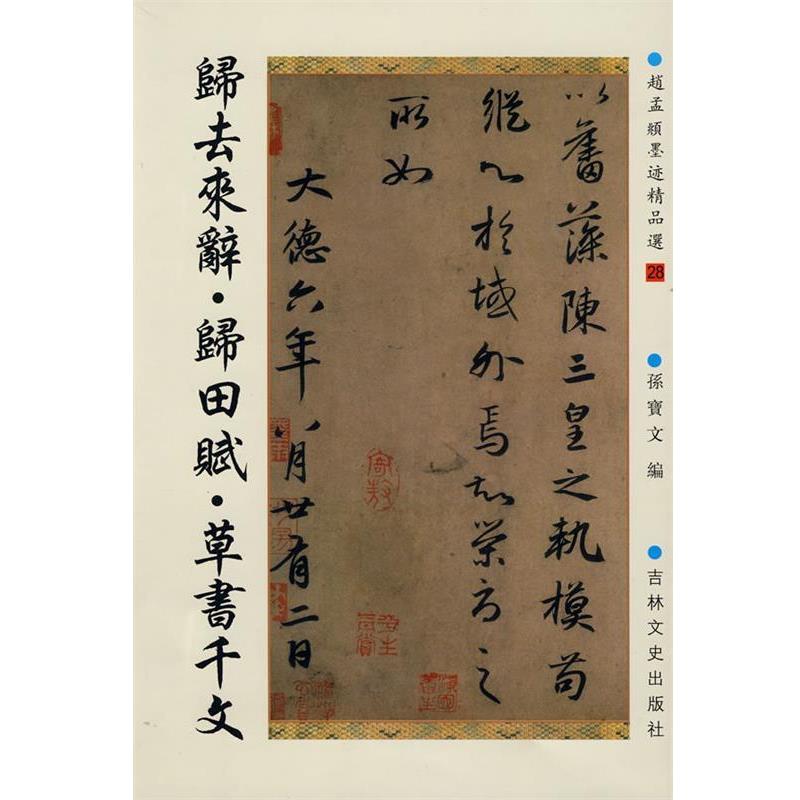 趙孟頫墨迹精品選 28
孫寶文 編
吉林文史出版社
以奮藻陳三皇之軌模苟
縱心於域外焉知榮辱之
所如
大德六年八月廿有二日
歸去來辭·歸田賦·草書千文